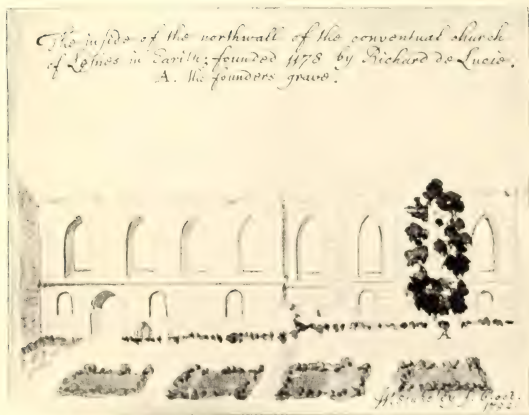 The inside of the northwall of the conventual church
of Lesnes in Earith: founded 1178 by Richard de Lucie.
A. the founders grave.
A
W. Stukeley f. 8 oct.